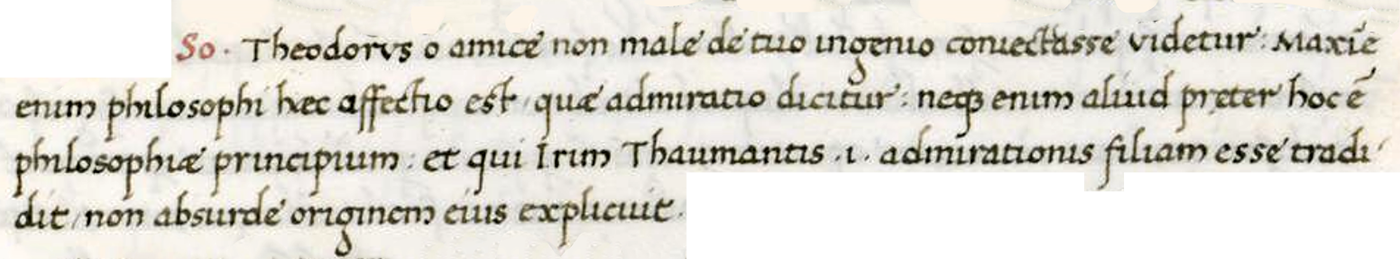 So. Theodorus ó amice non male de tuo ingenio coniectasse videtur: Maxīe
enim philosophi hæc affectio est, quæ admiratio dicitur: neqꝫ enim aliud pręter hoc ē
philosophiæ principium: et qui Irim Thaumantis .i. admirationis filiam esse tradi
dit, non absurde originem eius explicuit.